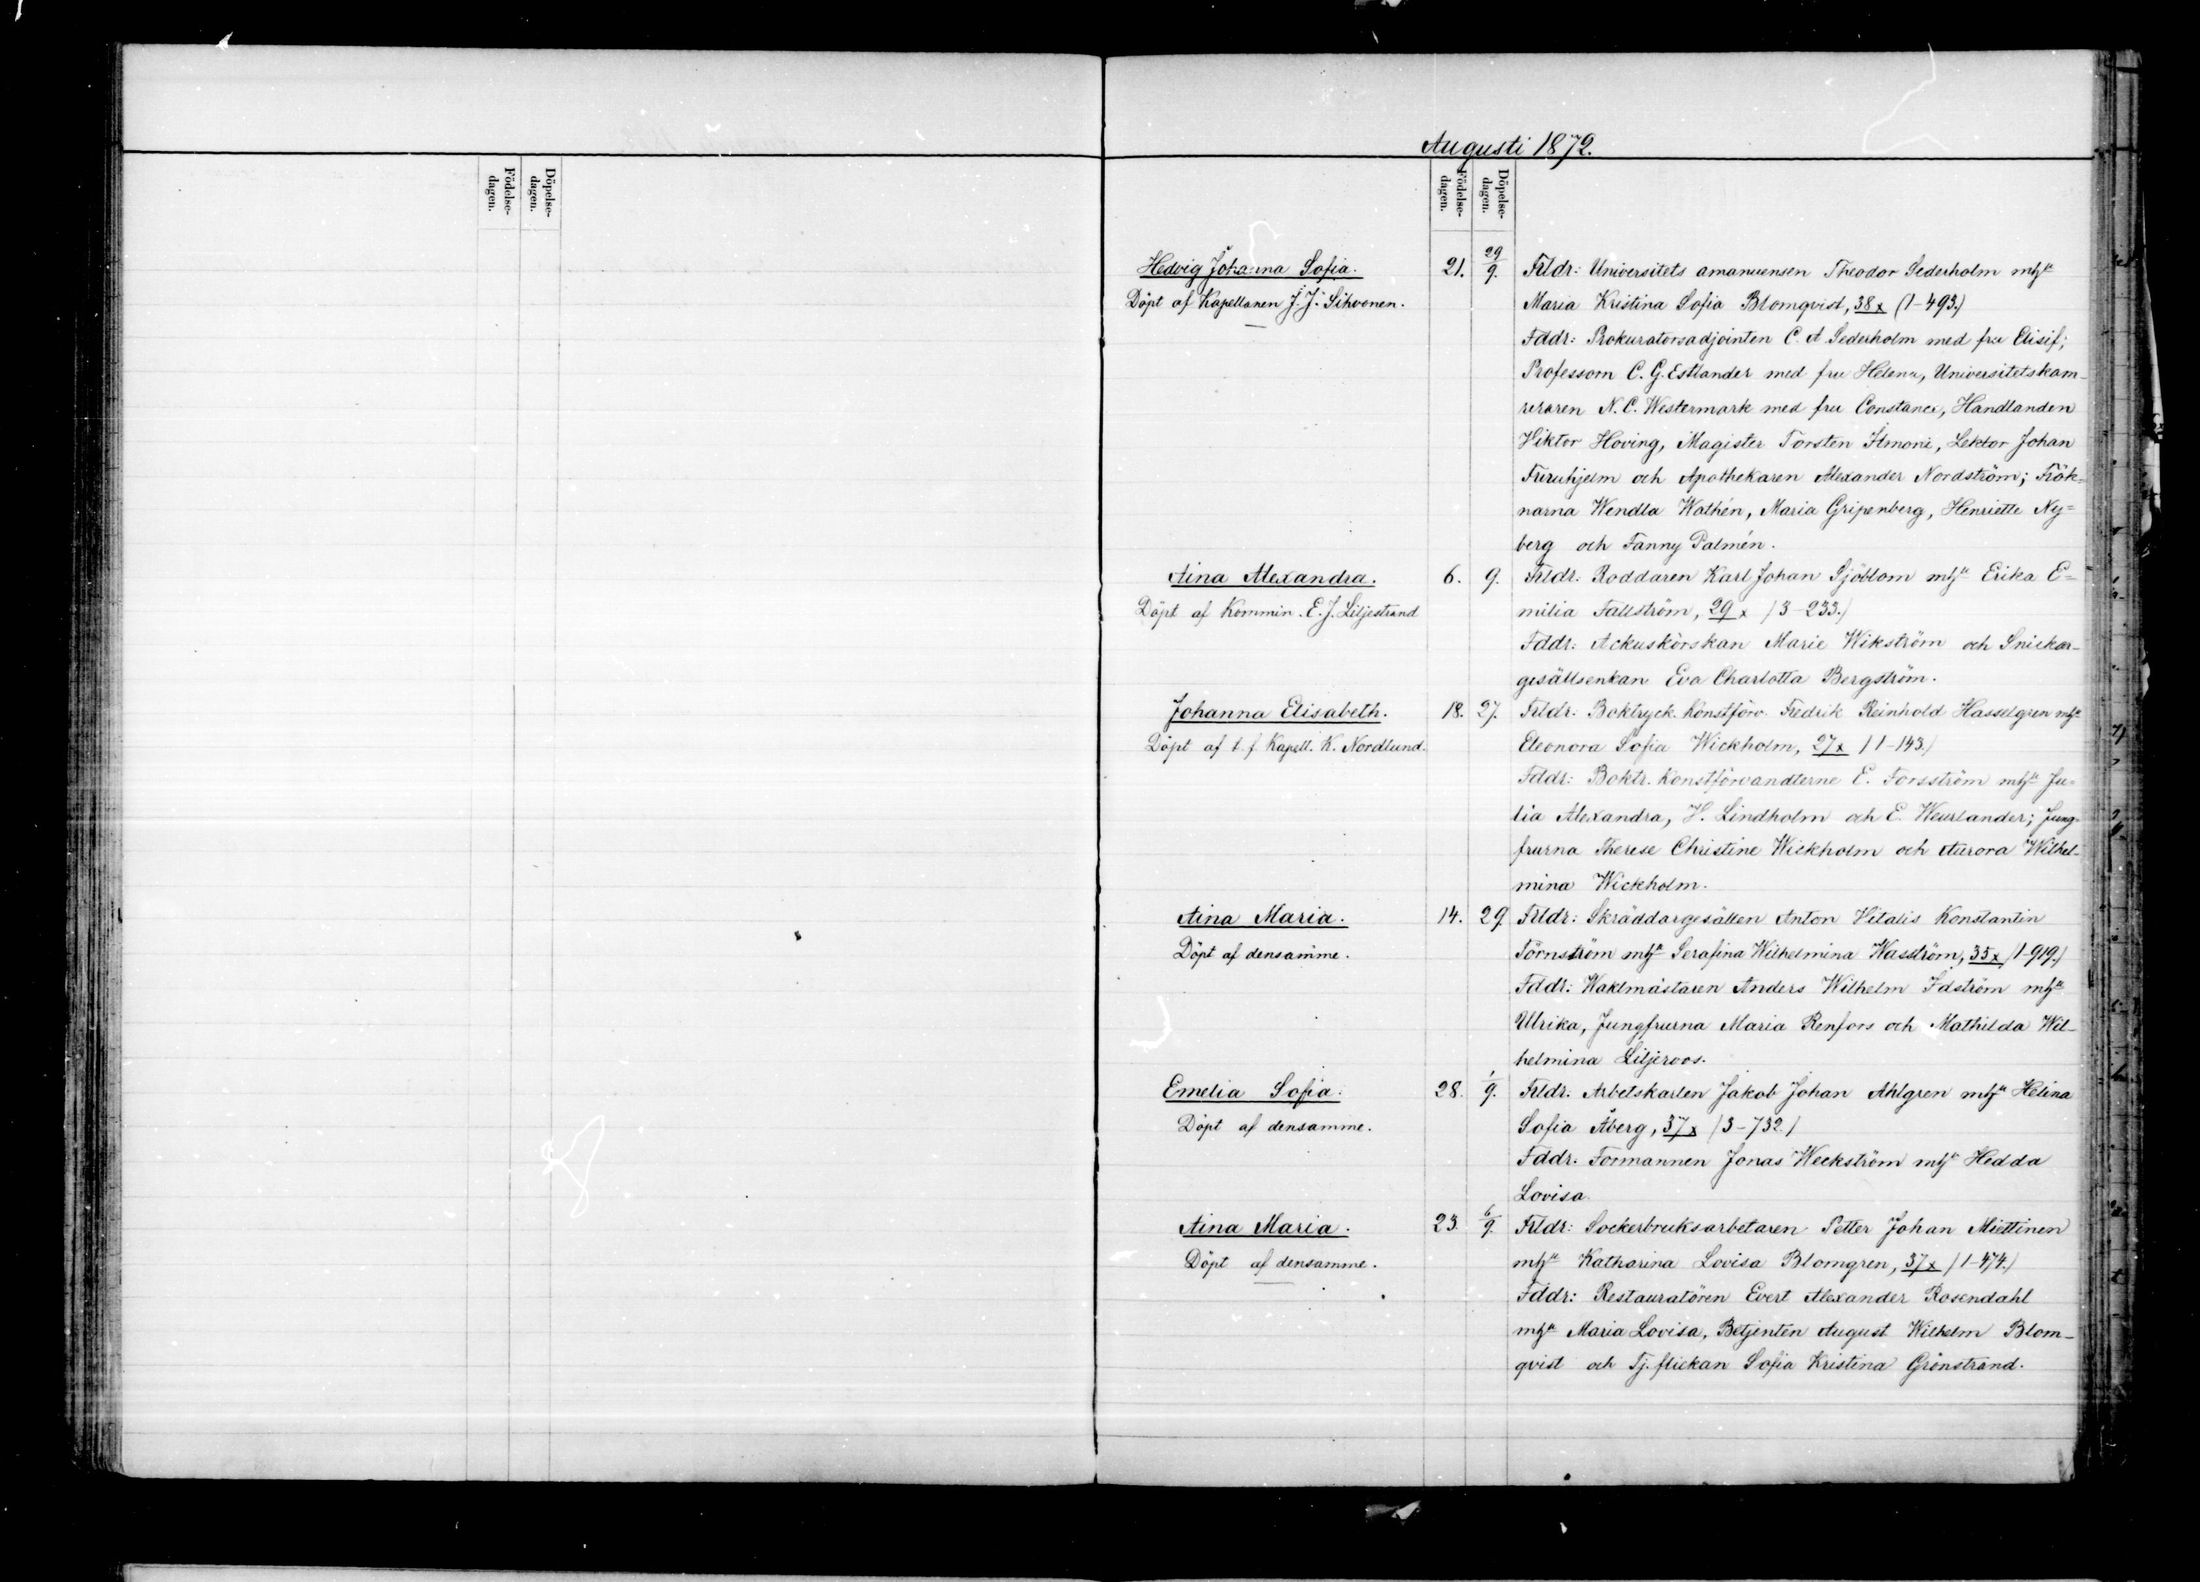 Augusti 1872.
Födelse-dagen.
Döpelse-dagen.
Födelse-dagen.
Döpelse-dagen.
Hedvig Johanna Sofia. 21. 29/9. Frldr: Universitets amanuensen Theodor Sederholm mhu
Döpt af Kapellanen J. J. Sihvonen. Maria Kristina Sofia Blomqvist, 38x (1-493.)
Fddr: Prokuratorsadjointen C. A Sederholm med fru Elisif;
Professorn C. G. Estlander med fru Helena, Universitetskam-
reraren N. C. Westermark med fru Constance, Handlanden
Viktor Hoving, Magister Torsten Almoni, Lektor Johan
Furuhjelm och Apothekaren Alexander Nordström; Frök=
narna Wendla Wathén, Maria Gripenberg, Henriette Ny=
berg och Fanny Palmén.
Aina Alexandra. 6. 9. Frldr. Roddaren Karl Johan Sjöblom mhu Erika E=
Döpt af Kommin. E. J. Liljestrand milia Fallström, 29 x /3-233./
Fddr: Ackuskörskan Marie Wikström och Snickar-
gesällsenkan Eva Charlotta Bergström.
Johanna Elisabeth. 18. 27. Frldr. Boktryck. Konstförv. Fredrik Reinhold Hasselgren mhu
Döpt af t. f. Kapell. K. Nordlund. Eleonora Sofia Wickholm, 27x /1-143./
Fddr: Boktr. Konstförvandterne E. Forsström mhu Ju=
lia Alexandra, H. Lindholm och E. Weurlander; Jung-
frurna Therese Christine Wickholm och Aurora Wilhel-
mina Wickholm.
Aina Maria. 14. 29. Frldr: Skräddargesällen Anton Vitalis Konstantin
Döpt af densamme. Törnström mhu Serafina Wilhelmina Wasström, 35x /1-919./
Fddr: Waktmästaren Anders Wilhelm Idström mhu
Ulrika, Jungfrurna Maria Renfors och Mathilda Wil-
helmina Liljeroos.
Emelia Sofia. 28. 1/9. Frldr. Arbetskarlen Jakob Johan Ahlgren mhu Helina
Döpt af densamme. Sofia Åberg, 37x /3-732./
Fddr. Formannen Jonas Weckström mhu Hedda
Lovisa.
Aina Maria. 23. 6/9. Frldr: Sockerbruksarbetaren Petter Johan Miettinen
Döpt af densamme. mhu Katharina Lovisa Blomgren, 37x /1-474./
Fddr: Restauratören Evert Alexander Rosendahl
mhu Maria Lovisa, Betjenten August Wilhelm Blom-
qvist och Tj. flickan Sofia Kristina Grönstrand.